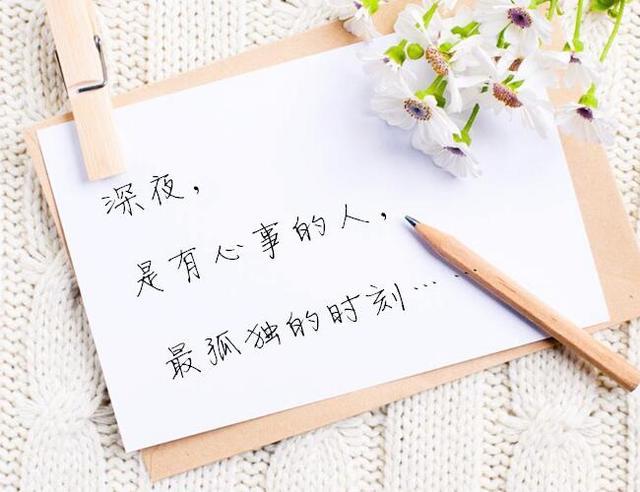 深夜，
是有心事的人，
最孤独的时刻……